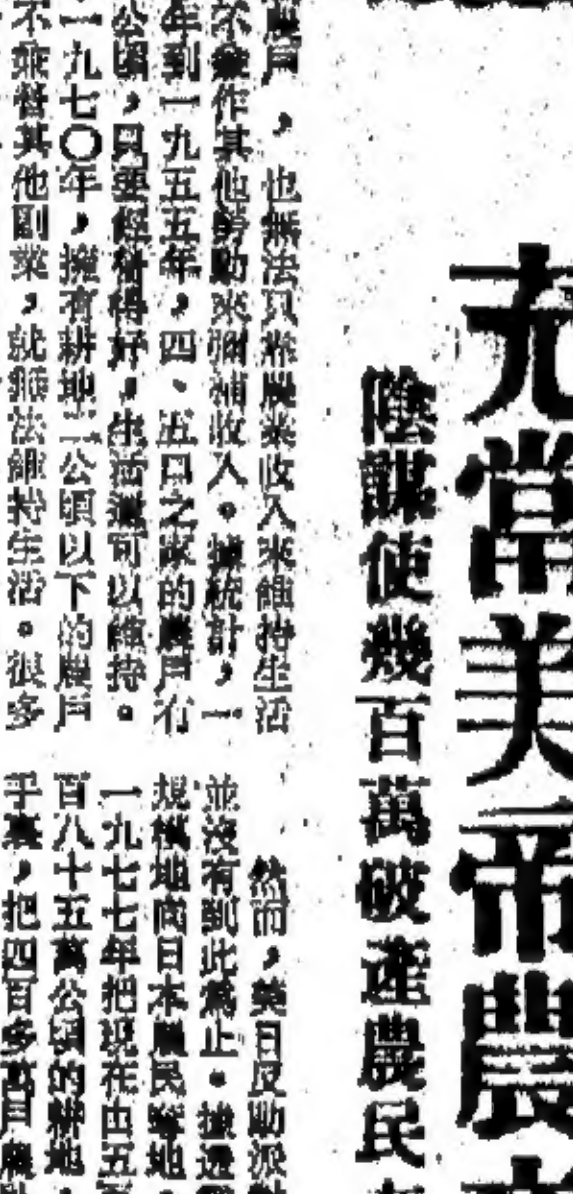 充當美帝農
陰謀使幾百萬破產農民
農戶，也無法只靠農業收入來維持生活
不兼作其他勞動來彌補收入。據統計，一
年到一九五五年，四、五口之家的農戶有
公頃，只要經營得好，生活還可以維持。
一九七〇年，擁有耕地二公頃以下的農戶
不兼營其他副業，就無法維持生活。很多
然而，美日反動派
並沒有到此爲止。據透
規模地向日本農民奪地
一九七七年把現在由五百
百八十五萬公頃的耕地
手裏，把四百多萬戶農